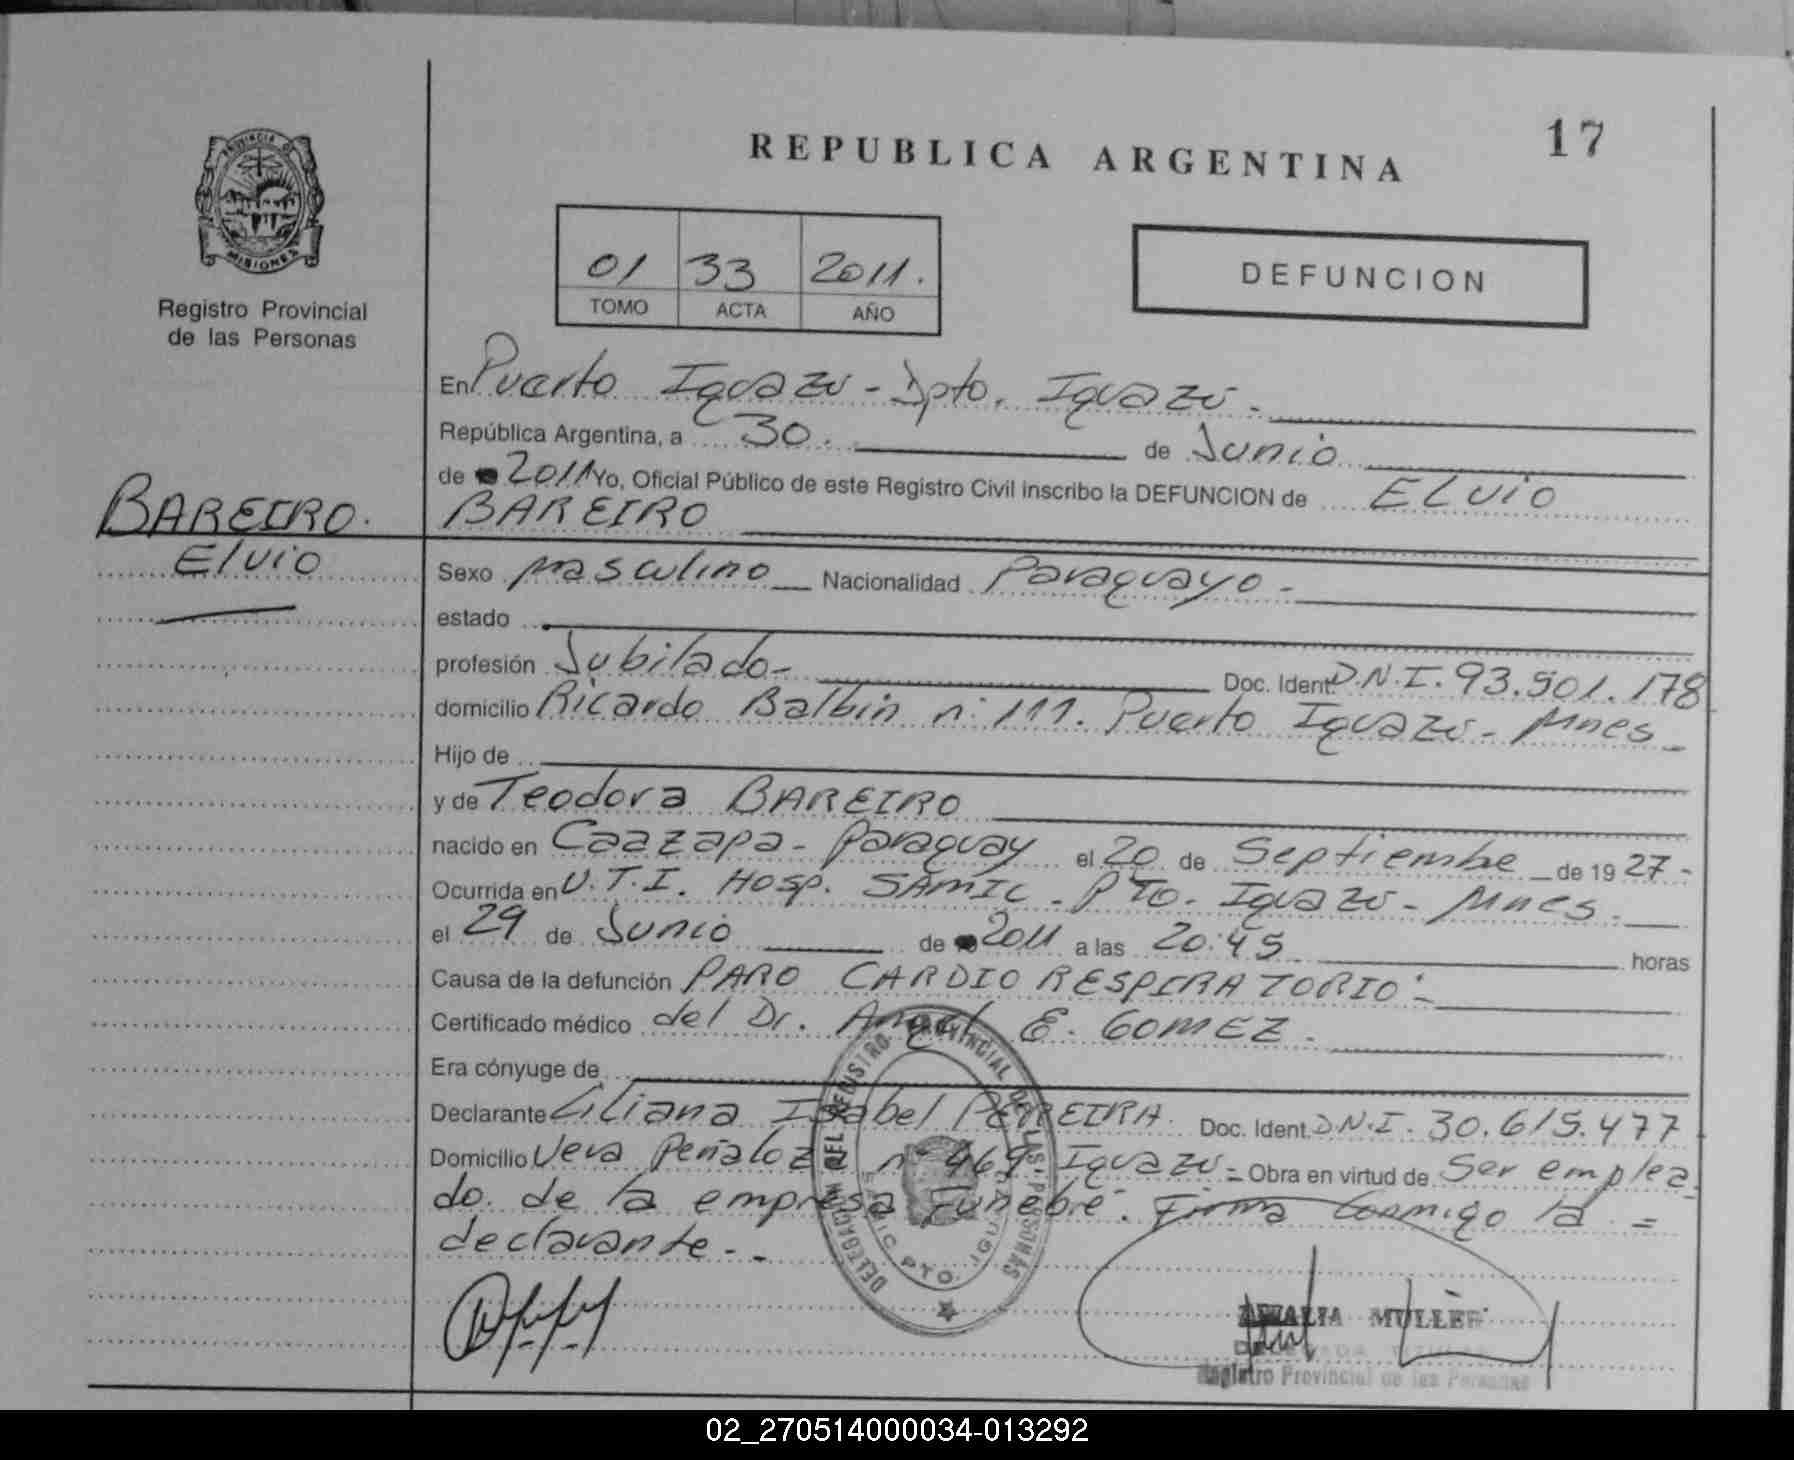 PROVINCIA D
MISIONES
Registro Provincial
de las Personas
REPUBLICA ARGENTINA
17
01 33 2011.
TOMO ACTA AÑO
DEFUNCION
En Puerto Iguazú - Dpto. Iguazú -
República Argentina, a 30. de Junio
de 2011 Yo, Oficial Público de este Registro Civil inscribo la DEFUNCION de ELvio
BAREIRO
BAREIRO.
Elvio
Sexo masculino Nacionalidad Paraguayo -
estado
profesión Jubilado - Doc. Ident. D.N.I. 93.901.178
domicilio Ricardo Balbin n° 111. Puerto Iguazú - Mnes -
Hijo de
y de Teodora BAREIRO
nacido en Caazapa - Paraguay el 20 de Septiembre de 19 27 -
Ocurrida en U.T.I. Hosp. SAMIC - PTO. Iguazú - Mnes.
el 29 de Junio de 2011 a las 20:45 horas
Causa de la defunción PARO CARDIO RESPIRATORIO -
Certificado médico del Dr. Angel E. GOMEZ -
Era cónyuge de
Declarante Liliana Isabel PEREIRA. Doc. Ident. D.N.I. 30.615.477
Domicilio Vera Peñaloza n° 469 Iguazú - Obra en virtud de Ser emplea
do de la empresa Funebre. Firma conmigo la =
declarante - -
DELEGACION DEL REGISTRO PROVINCIAL DE LAS PERSONAS
SAMIC PTO. IGUAZU
AMALIA MULLER
DELEGADA TITULAR
Registro Provincial de las Personas
02_270514000034-013292